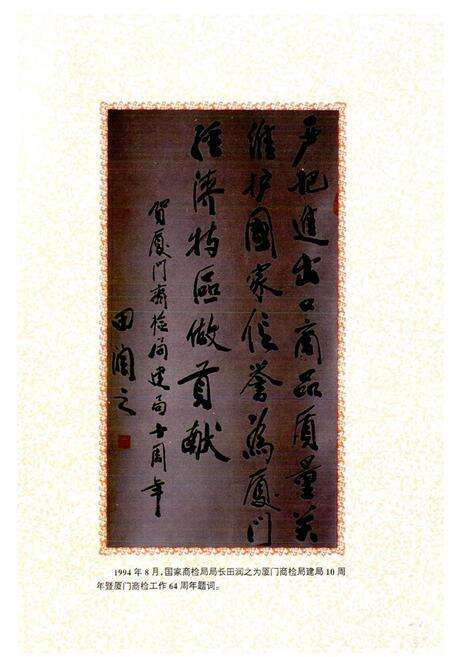 严把進出口商品质量关
维护國家信誉為厦门
经濟特區做贡献
贺厦门商检局建局十周年
田润之
1994 年 8 月,国家商检局局长田润之为厦门商检局建局 10 周
年暨厦门商检工作 64 周年题词。